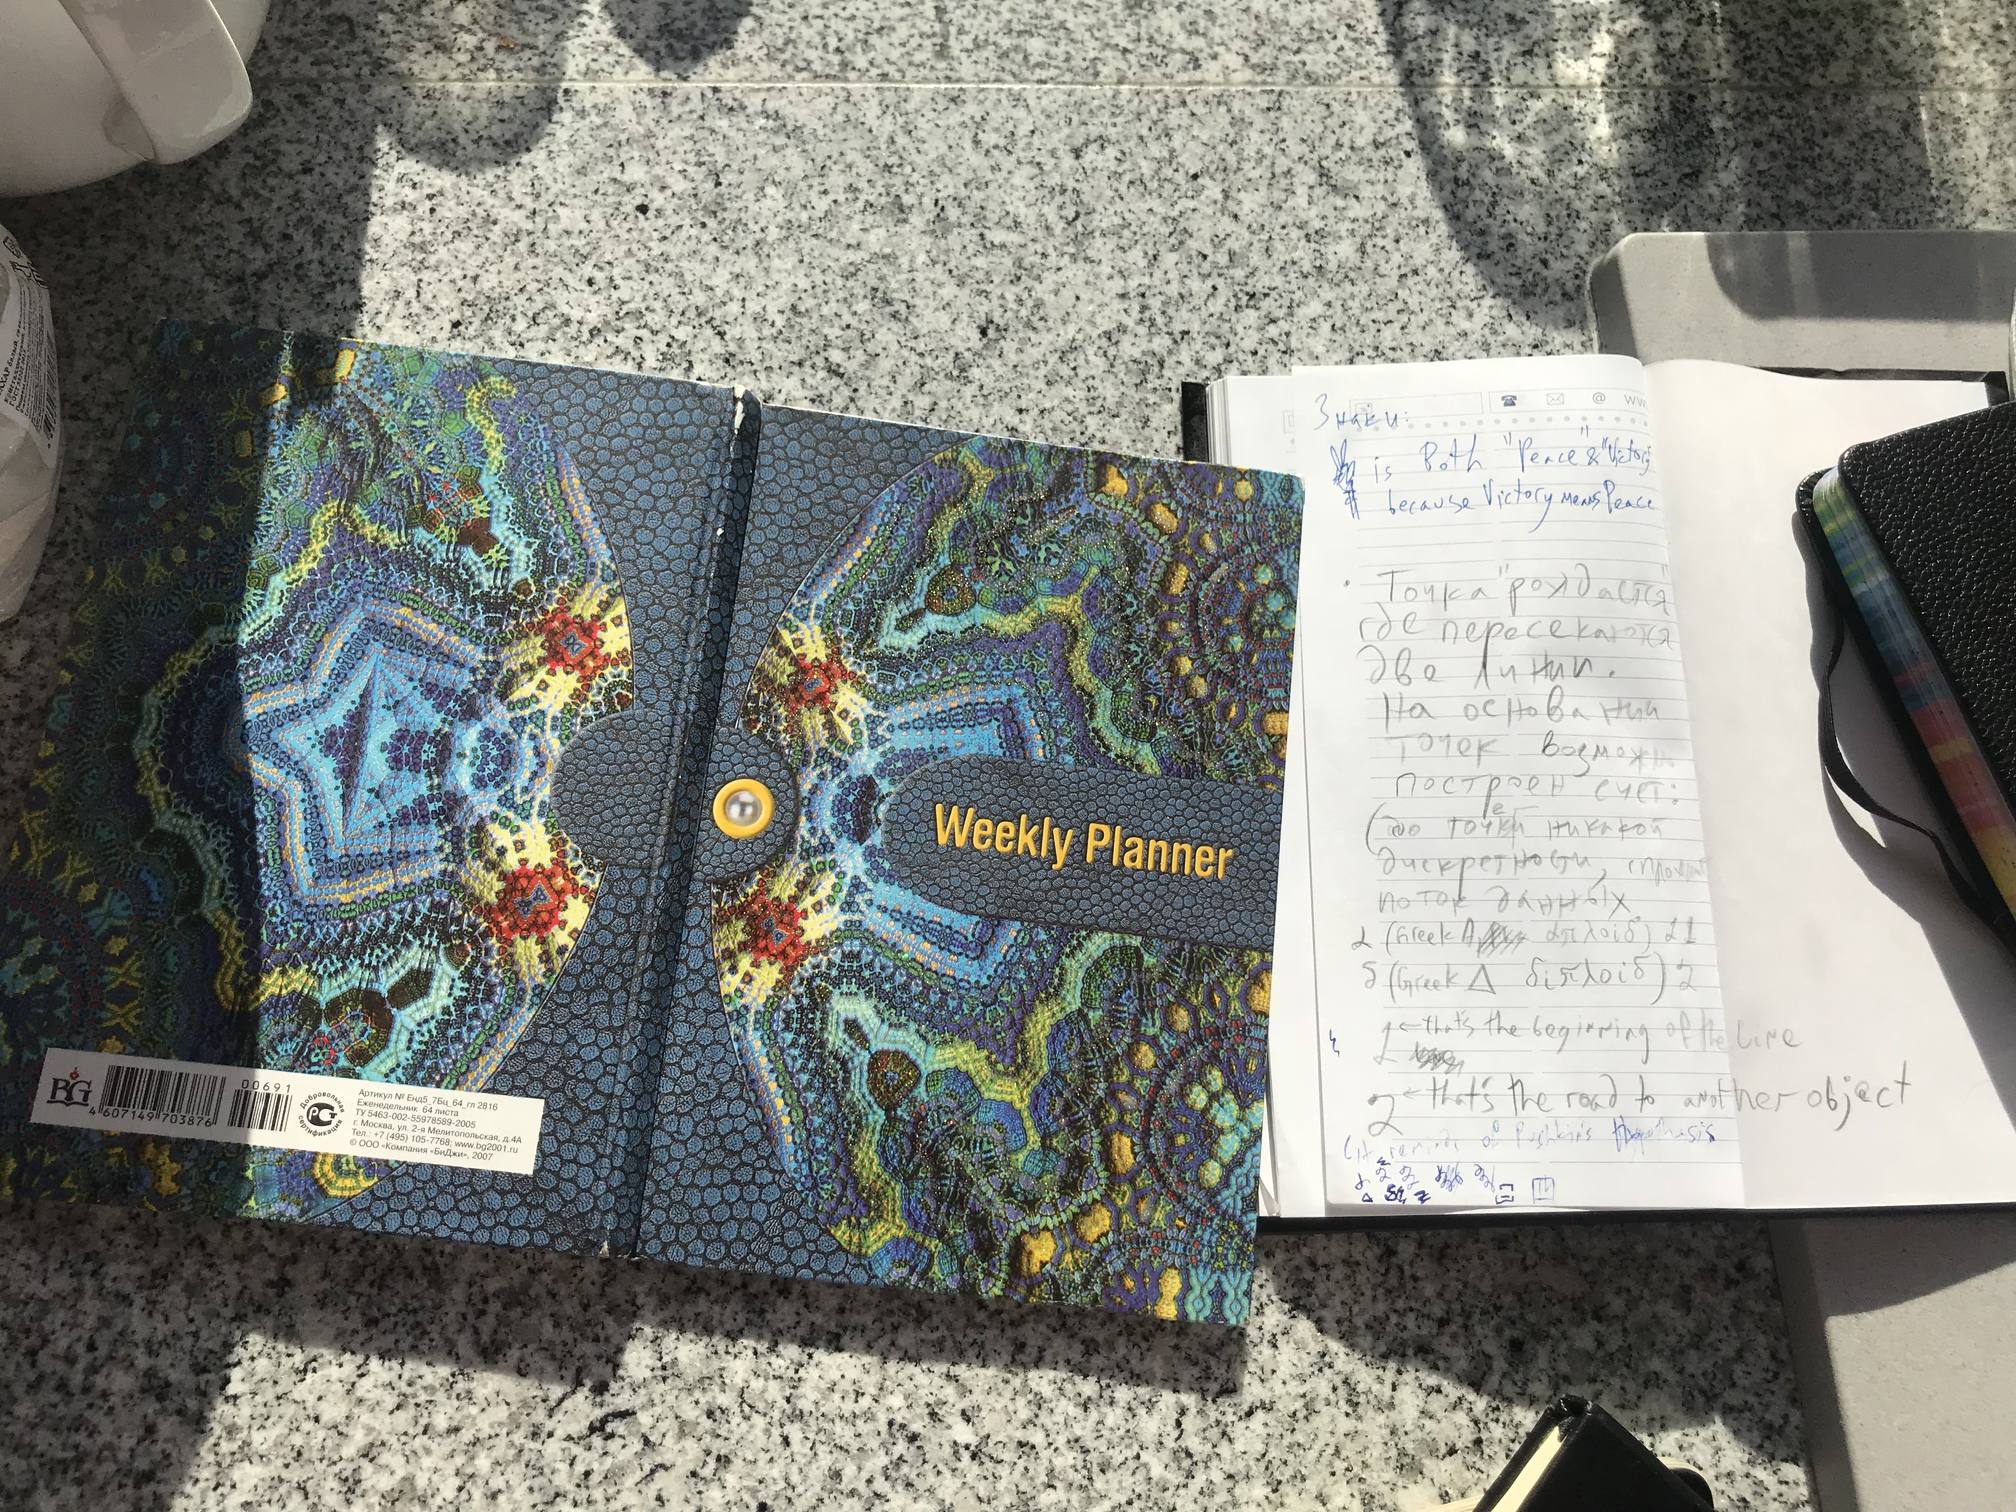 Weekly Planner
BG
4 607149 703876
00691
Добровольная сертификация
РСТ
Артикул № Енд5_7Бц_64_гл 2816
Еженедельник 64 листа
ТУ 5463-002-55978589-2005
г. Москва, ул. 2-я Мелитопольская, д.4А
Тел.: +7 (495) 105-7768; www.bg2001.ru
© ООО «Компания «БиДжи», 2007
@ ww
Знаки:
is Both "Peace" & "Victory
because Victory means Peace
· Точка "рождается"
где пересекаются
две линии.
На основании
точек возможн
построен счет:
(до точки никакой
дискретности,
поток данных
(Greek A απλοιδ) 1
δ (Greek Δ διπλοιδ) 2
1 ← that's the beginning of the Line
2 ← that's the road to another object
(it reminds of Pushkin's